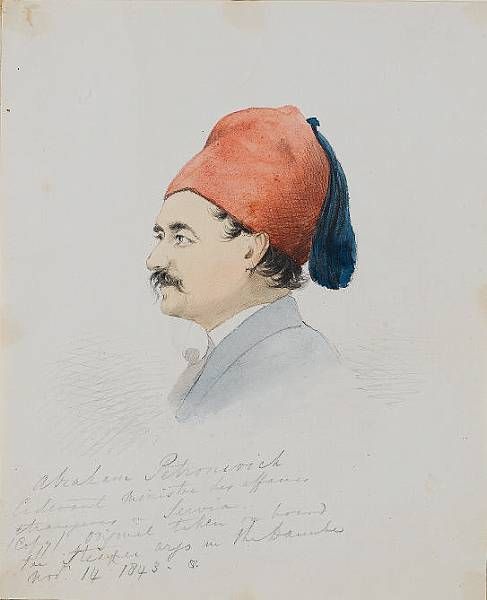 Abraham Petronevich
Cidevant Ministre des affaires
etrangeres in Servia.
(Copy) Original taken on board
the Steamer Argo in the Danube
Nov. 14 1843.